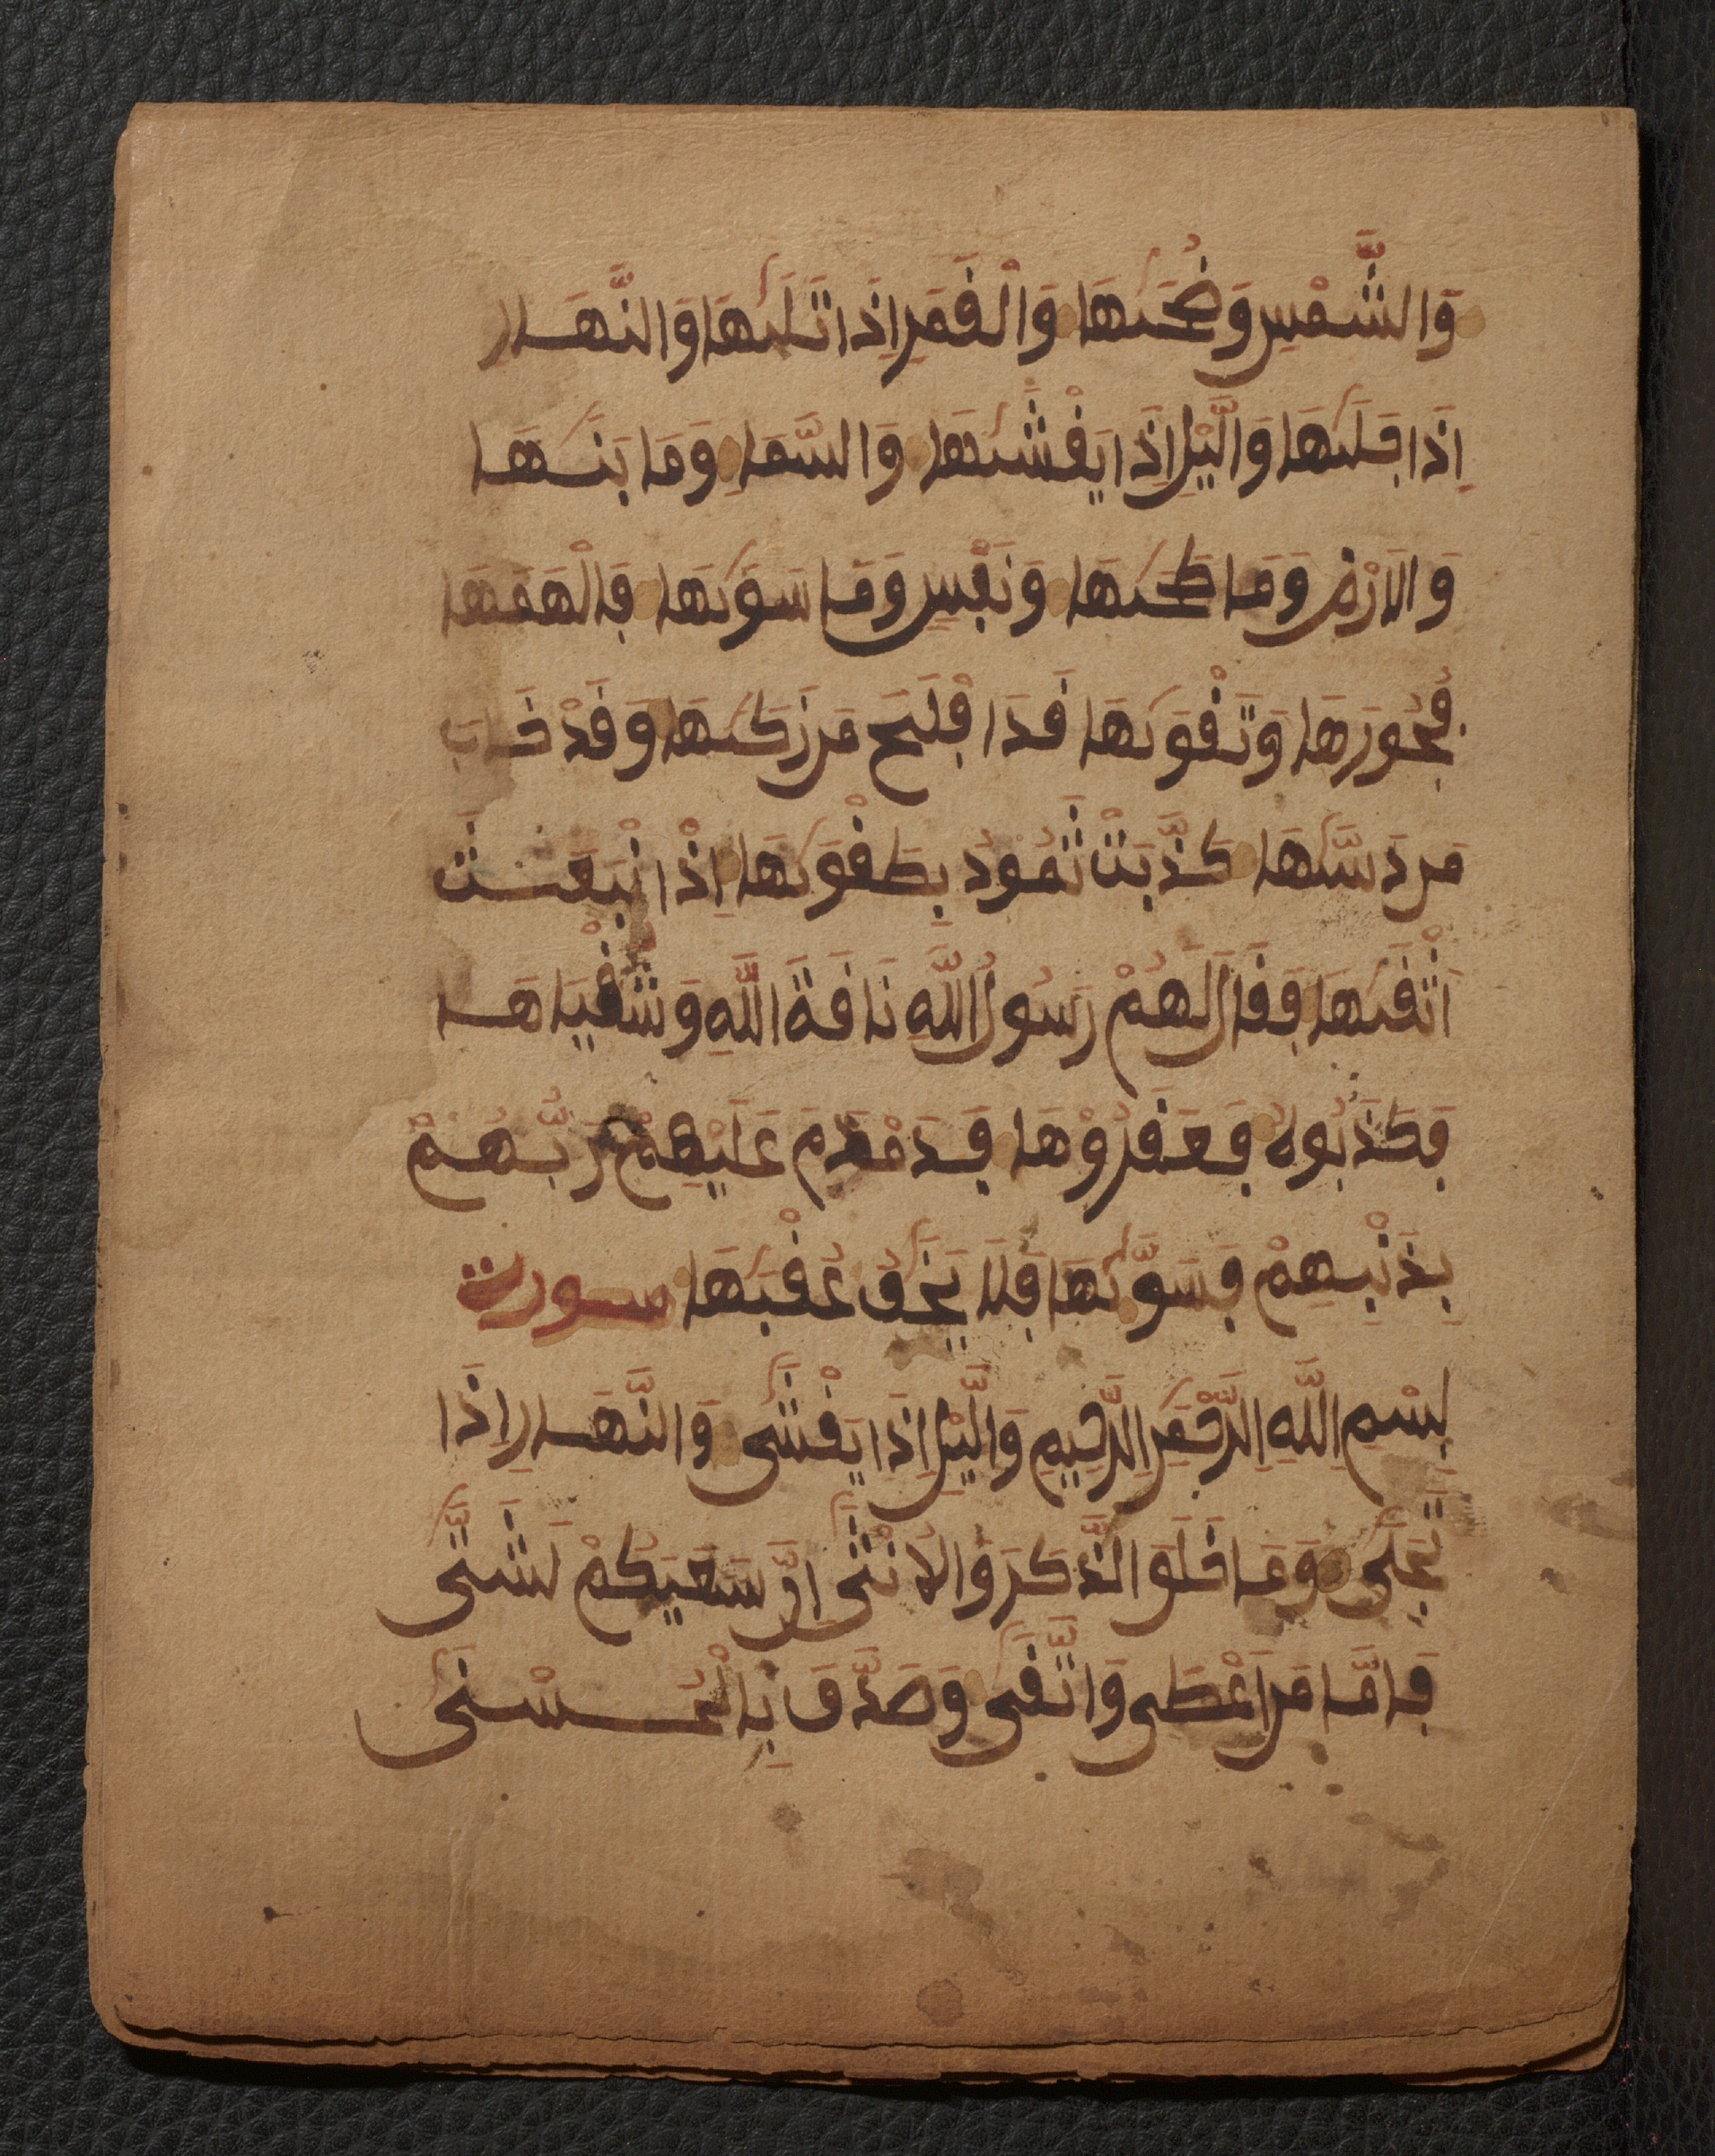 وَالشَّمْسِ وَضُحَىٰهَا وَالْقَمَرِ إِذَا تَلَىٰهَا وَالنَّهَارِ
إِذَا جَلَىٰهَا وَالَّيْلِ إِذَا يَغْشَىٰهَا وَالسَّمَاِ وَمَا بَنَىٰهَا
وَالَارْضِ وَمَا طَحَىٰهَا وَنَفْسٍ وَمَا سَوَىٰهَا فَالْهَمَهَا
فُجُورَهَا وَتَقْوَىٰهَا قَدَ افْلَحَ مَن زَكَىٰهَا وَقَدْ خَابَ
مَن دَسَّىٰهَا كَذَّبَتْ ثَمُودُ بِطَغْوَىٰهَا إِذْ انْبَعَثَتْ
اَشْقَىٰهَا فَقَالَ لَهُمْ رَسُولُ اللَّهِ نَاقَةَ اللَّهِ وَسُقْيَاهَا
فَكَذَبُوهُ فَعَقَرُوْهَا فَدَمْدَمَ عَلَيْهِمْ رَبُّهُمْ
بِذَنْبِهِمْ فَسَوَّىٰهَا فَلَا يَخَافُ عُقْبَٰهَا سورت
بِسْمِ اللَّهِ الرَّحْمَٰنِ الرَّحِيمِ وَالَّيْلِ إِذَا يَغْشَىٰ وَالنَّهَارِ إِذَا
تَجَلَىٰ وَمَا خَلَقَ الذَّكَرَ وَالُانْثَىٰ إِنَّ سَعْيَكُمْ لَشَتَّىٰ
فَامَّا مَنَ اَعْطَىٰ وَاتَّقَىٰ وَصَدَّقَ بِالْحُسْنَىٰ